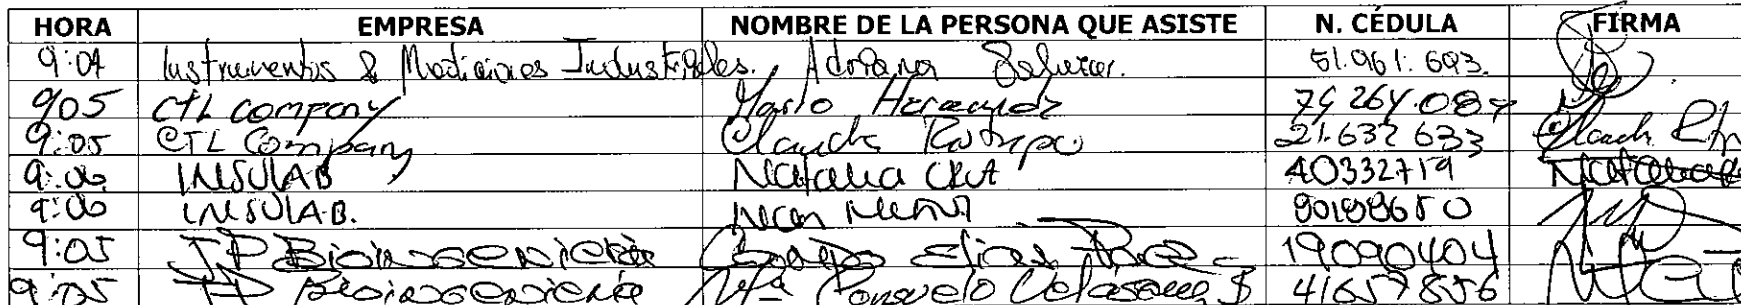 HORA EMPRESA NOMBRE DE LA PERSONA QUE ASISTE N. CÉDULA FIRMA
9:04 Instrumentos & Mediciones Industriales. Adriana 51.961.693.
905 CTL company Mario Hernandez
9:05 CTL Company Claudia Restrepo 21.632633
9:00 INSULAB Natalia Cruz 40332719
9:00 INSULAB.
9:05 JP Bioingenieria Elias 19090404
9:05 JP Bioingenieria Ma Consuelo Velasquez 41657856